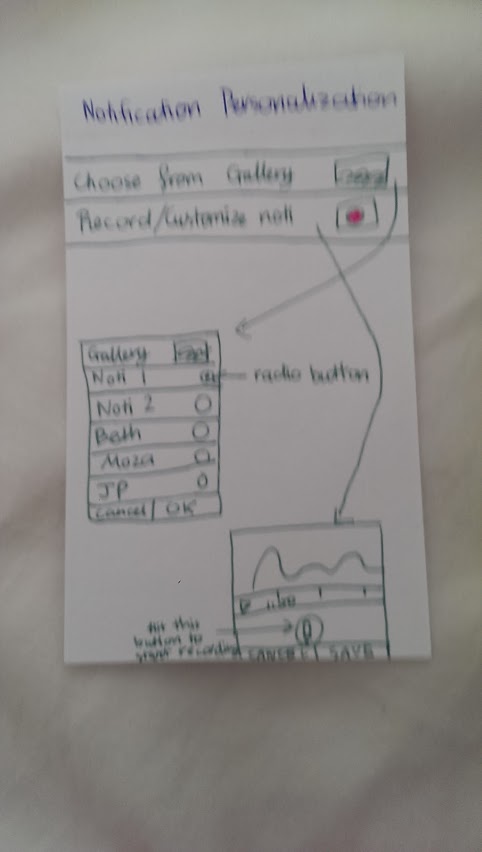 Notification Personalization
Choose from Gallery
Record/Customize noti
Gallery
Noti 1
radio button
Noti 2
Beth
Moza
JP
Cancel OK
Hit this
button to
start recording
CANCEL SAVE